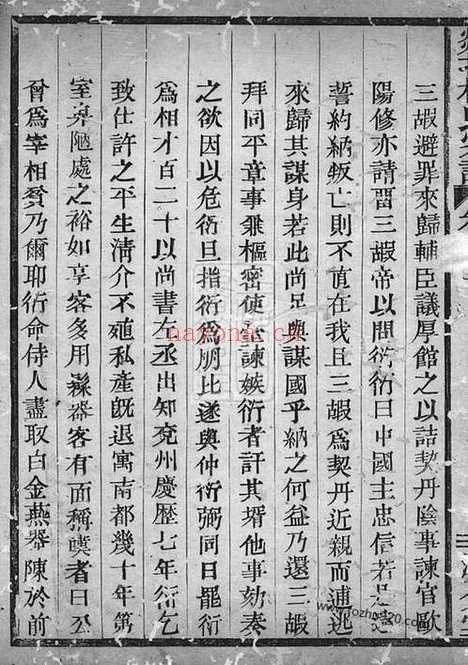 三嘏避罪來歸輔臣議厚館之以詰契丹陰事諫官歐
陽修亦請畱三嘏帝以問衍衍曰中國主忠信若
誓約納叛亡則不直在我且三嘏爲契丹近親而逋逃
來歸其謀身若此尚足與謀國乎納之何益乃還三嘏
拜同平章事兼樞密使 諫嫉衍者訐其壻他事劾奏
之欲因以危衍且指衍爲朋比遂與仲衍弼同日罷衍
爲相才百二十以尚書左丞出知兖州慶歷七年衍乞
致仕許之平生清介不殖私產旣退寓南都幾十年第
室卑陋處之裕如享客多用 器客有面稱嘆者曰公
曾爲宰相貧乃爾耶衍命侍人盡取白金燕器陳於前
nayona.cn
www.fozhen920.com